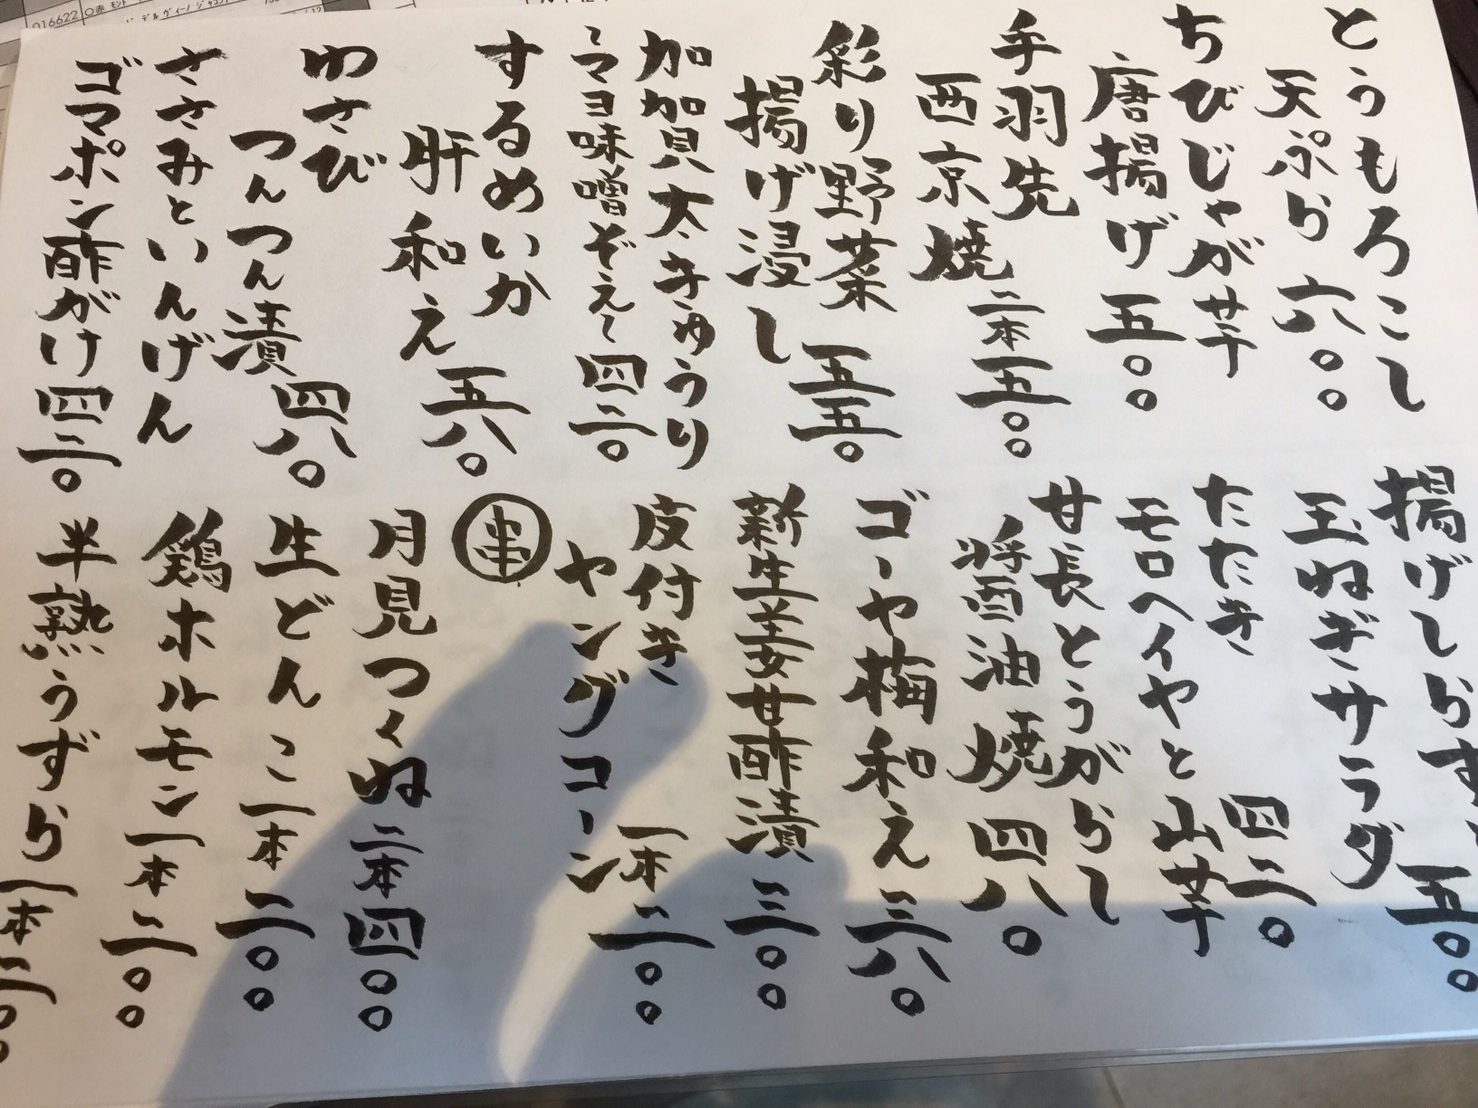 とうもろこし
天ぷら 六〇〇
ちびじゃが芋
唐揚げ 五〇〇
手羽先
西京焼 二本 五〇〇
彩り野菜
揚げ浸し 五五〇
加加貝太きゅうり
~マヨ味噌ぞえ~ 四二〇
するめいか
肝和え 五八〇
わさび
つんつん漬 四八〇
ささみといんげん
ゴマポン酢がけ 四三〇
揚げしらす
玉ねぎサラダ 五〇〇
たたき
モロヘイヤと山芋 四二〇
甘長とうがらし
醤油焼 四八〇
ゴーヤ梅和え 三八〇
新生姜甘酢漬 三〇〇
皮付き
ヤングコーン 一本 二〇〇
串
月見つくね 二本 四〇〇
生どんこ 一本 二〇〇
鶏ホルモン 一本 二〇〇
半熟うずら 一本 二〇〇
016622